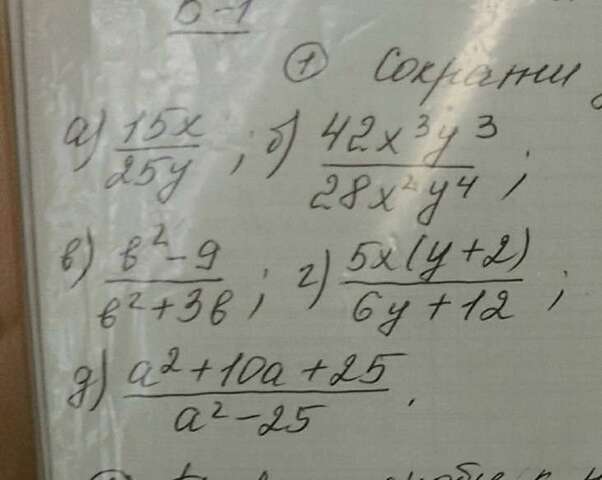 В-1
① Сократи
а) 15x/25y ; б) 42x³y³/28x²y⁴ ;
в) в²-9/в²+3в ; г) 5x(y+2)/6y+12 ;
д) a²+10a+25/a²-25 .